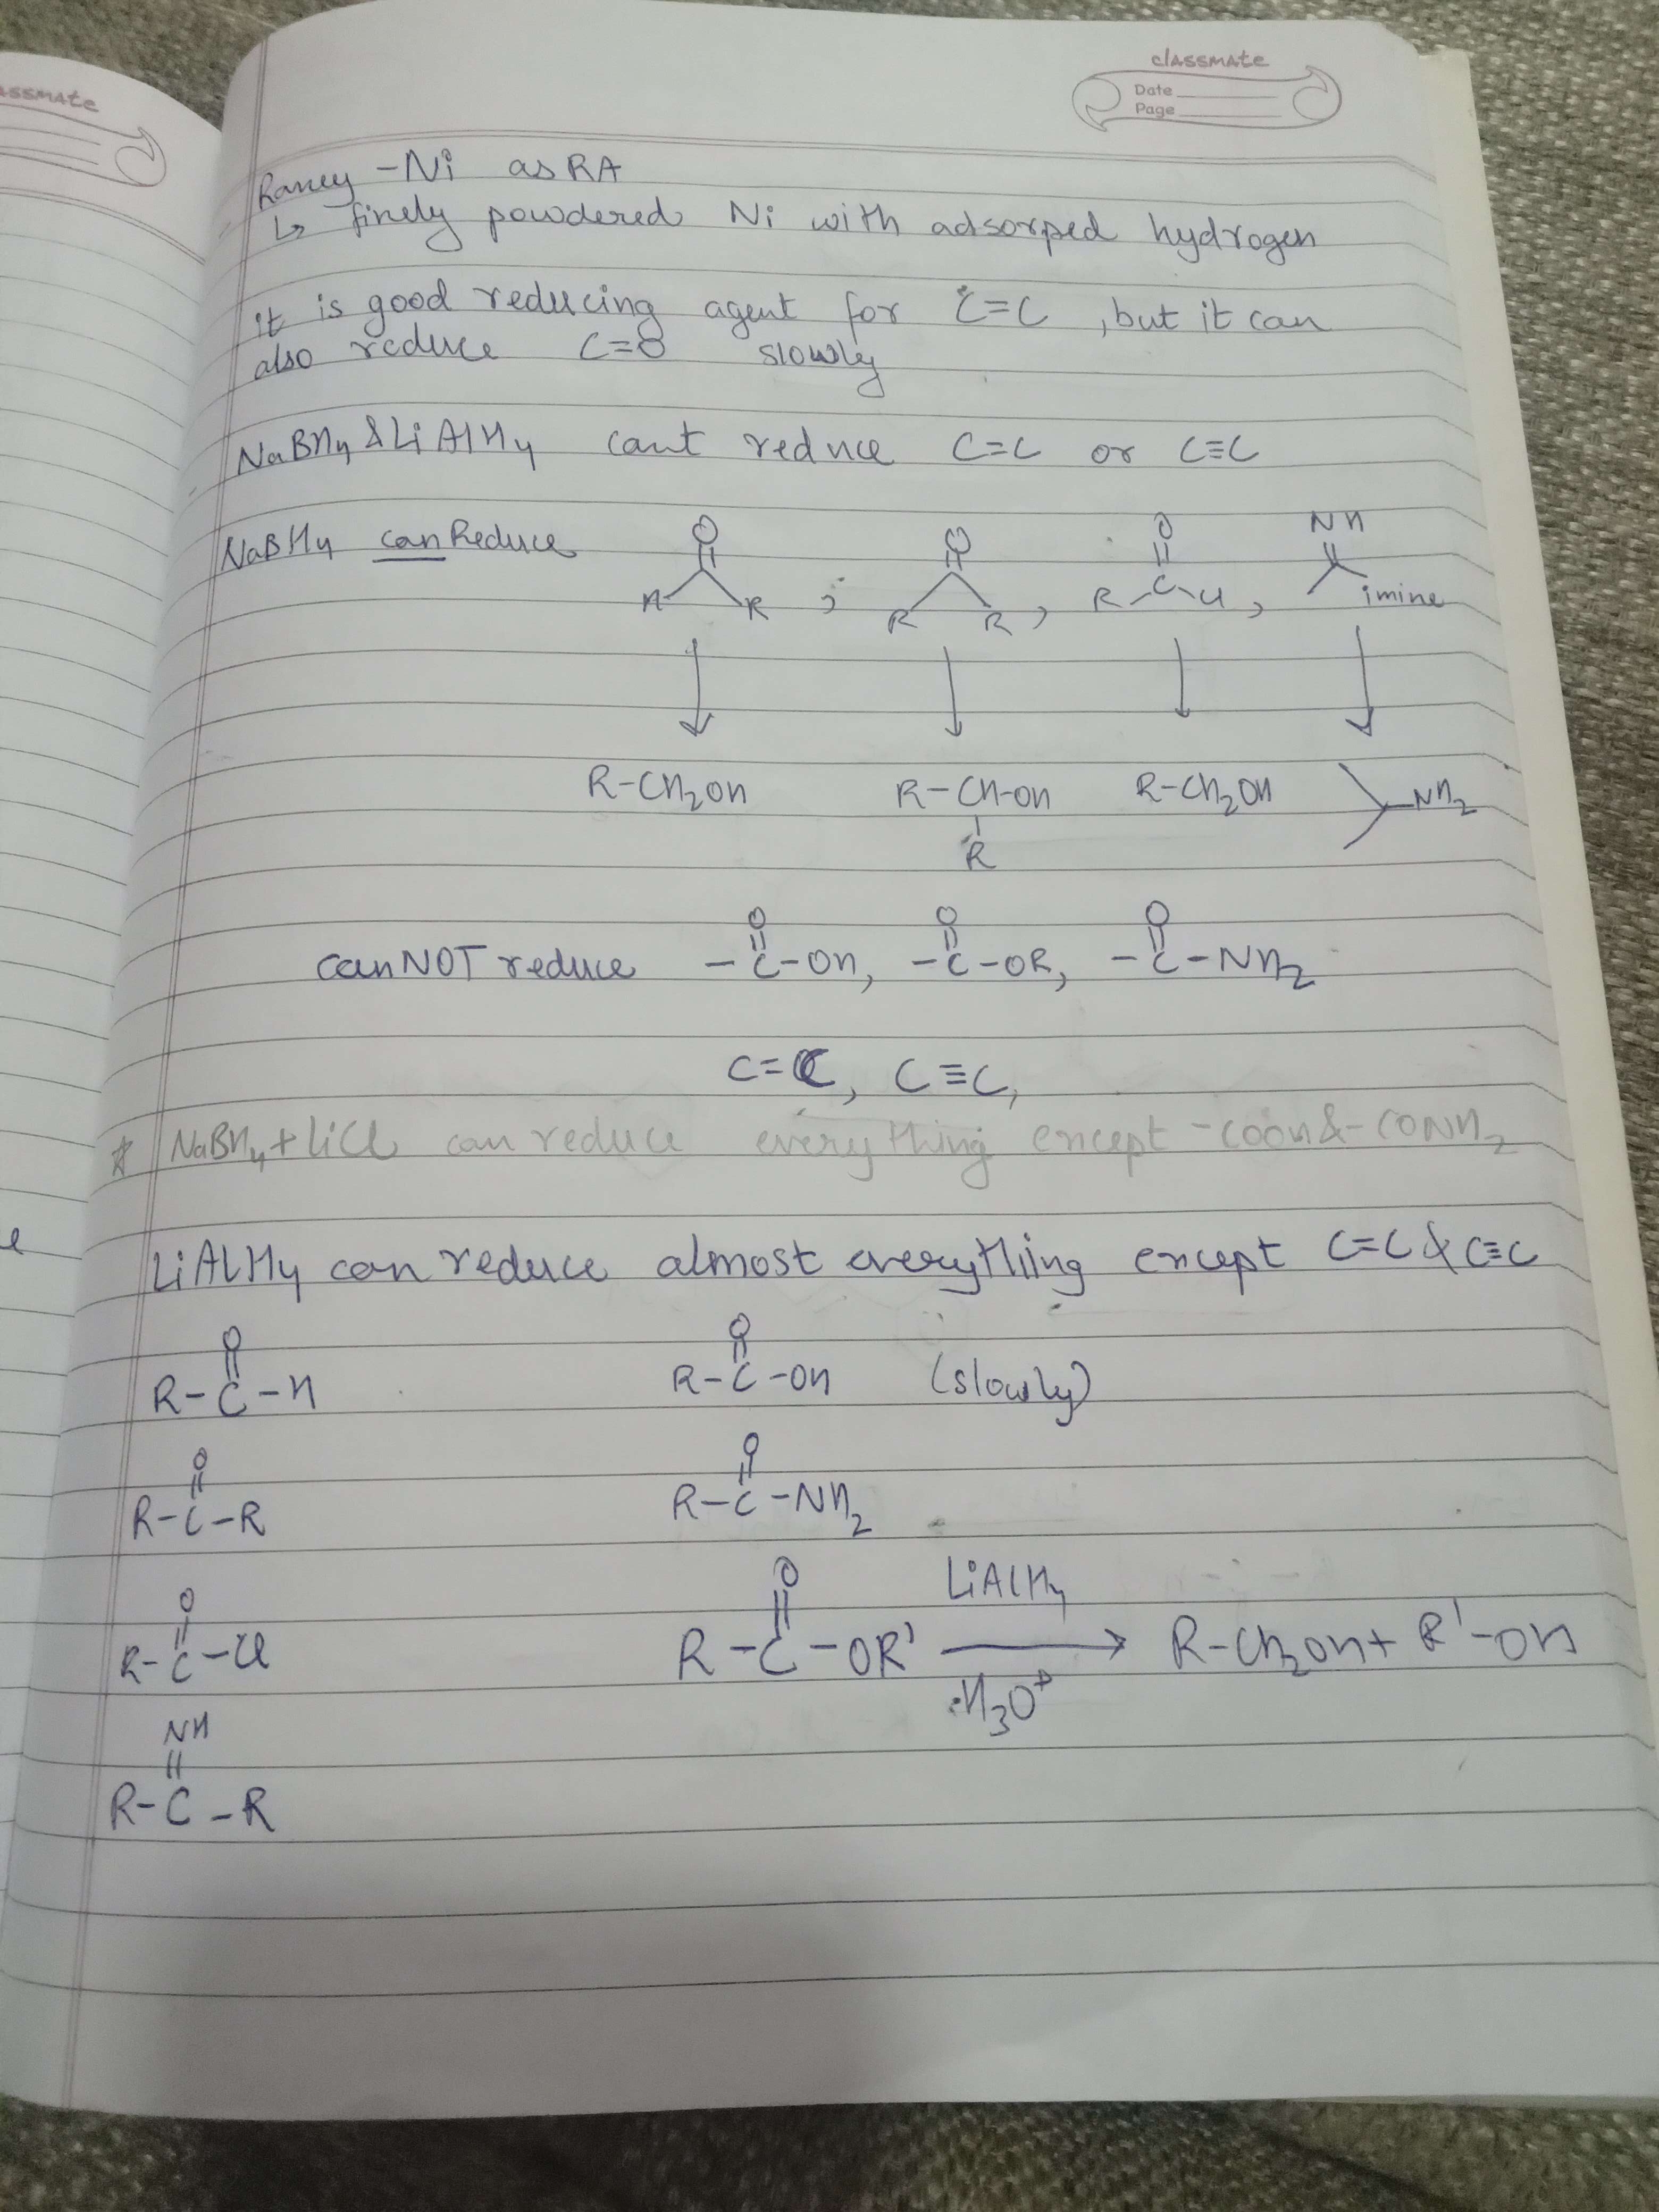 assmate
classmate
Date
Page
Raney -Ni as RA
↳ finely powdered Ni with adsorped hydrogen
it is good reducing agent for C=C , but it can
also reduce C=O slowly
NaBH4 & LiAlH4 cant reduce C=C or C≡C
NaBH4 can Reduce O O O NH
H R ; R R , R-C-Cl , imine
R-CH2OH R-CH-OH R-CH2OH NH2
R
canNOT reduce -C(=O)-OH, -C(=O)-OR, -C(=O)-NH2
C=C, C≡C,
☆ NaBH4 + LiCl can reduce everything except -COOH & -CONH2
e
LiAlH4 can reduce almost everything except C=C & C≡C
R-C(=O)-H R-C(=O)-OH (slowly)
R-C(=O)-R R-C(=O)-NH2
LiAlH4
R-C(=O)-Cl R-C(=O)-OR' → R-CH2OH + R'-OH
H3O+
NH
R-C-R